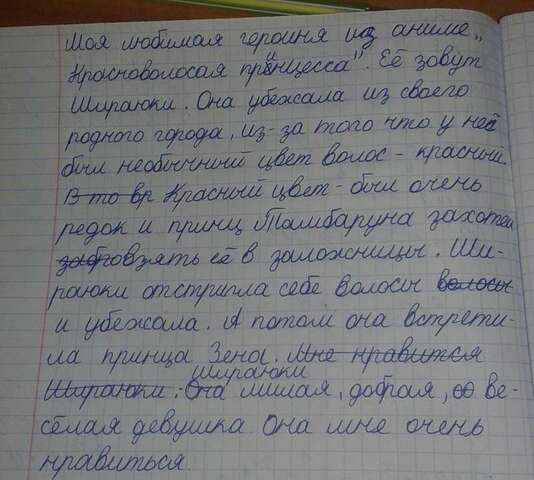 Моя любимая героиня из аниме „
Красноволосая принцесса". Её зовут
Шираюки. Она убежала из своего
родного города, из-за того что у неё
был необычный цвет волос - красный.
В то вр Красный цвет - был очень
редок и принц Тамбаруна захотел
забр взять её в заложницы. Ши-
раюки отстригла себе волосы волосы
и убежала. А потом она встрети-
ла принца Зена. Мне нравится
Шираюки. Она Шираюки милая, добрая, ве-
сёлая девушка Она мне очень
нравиться